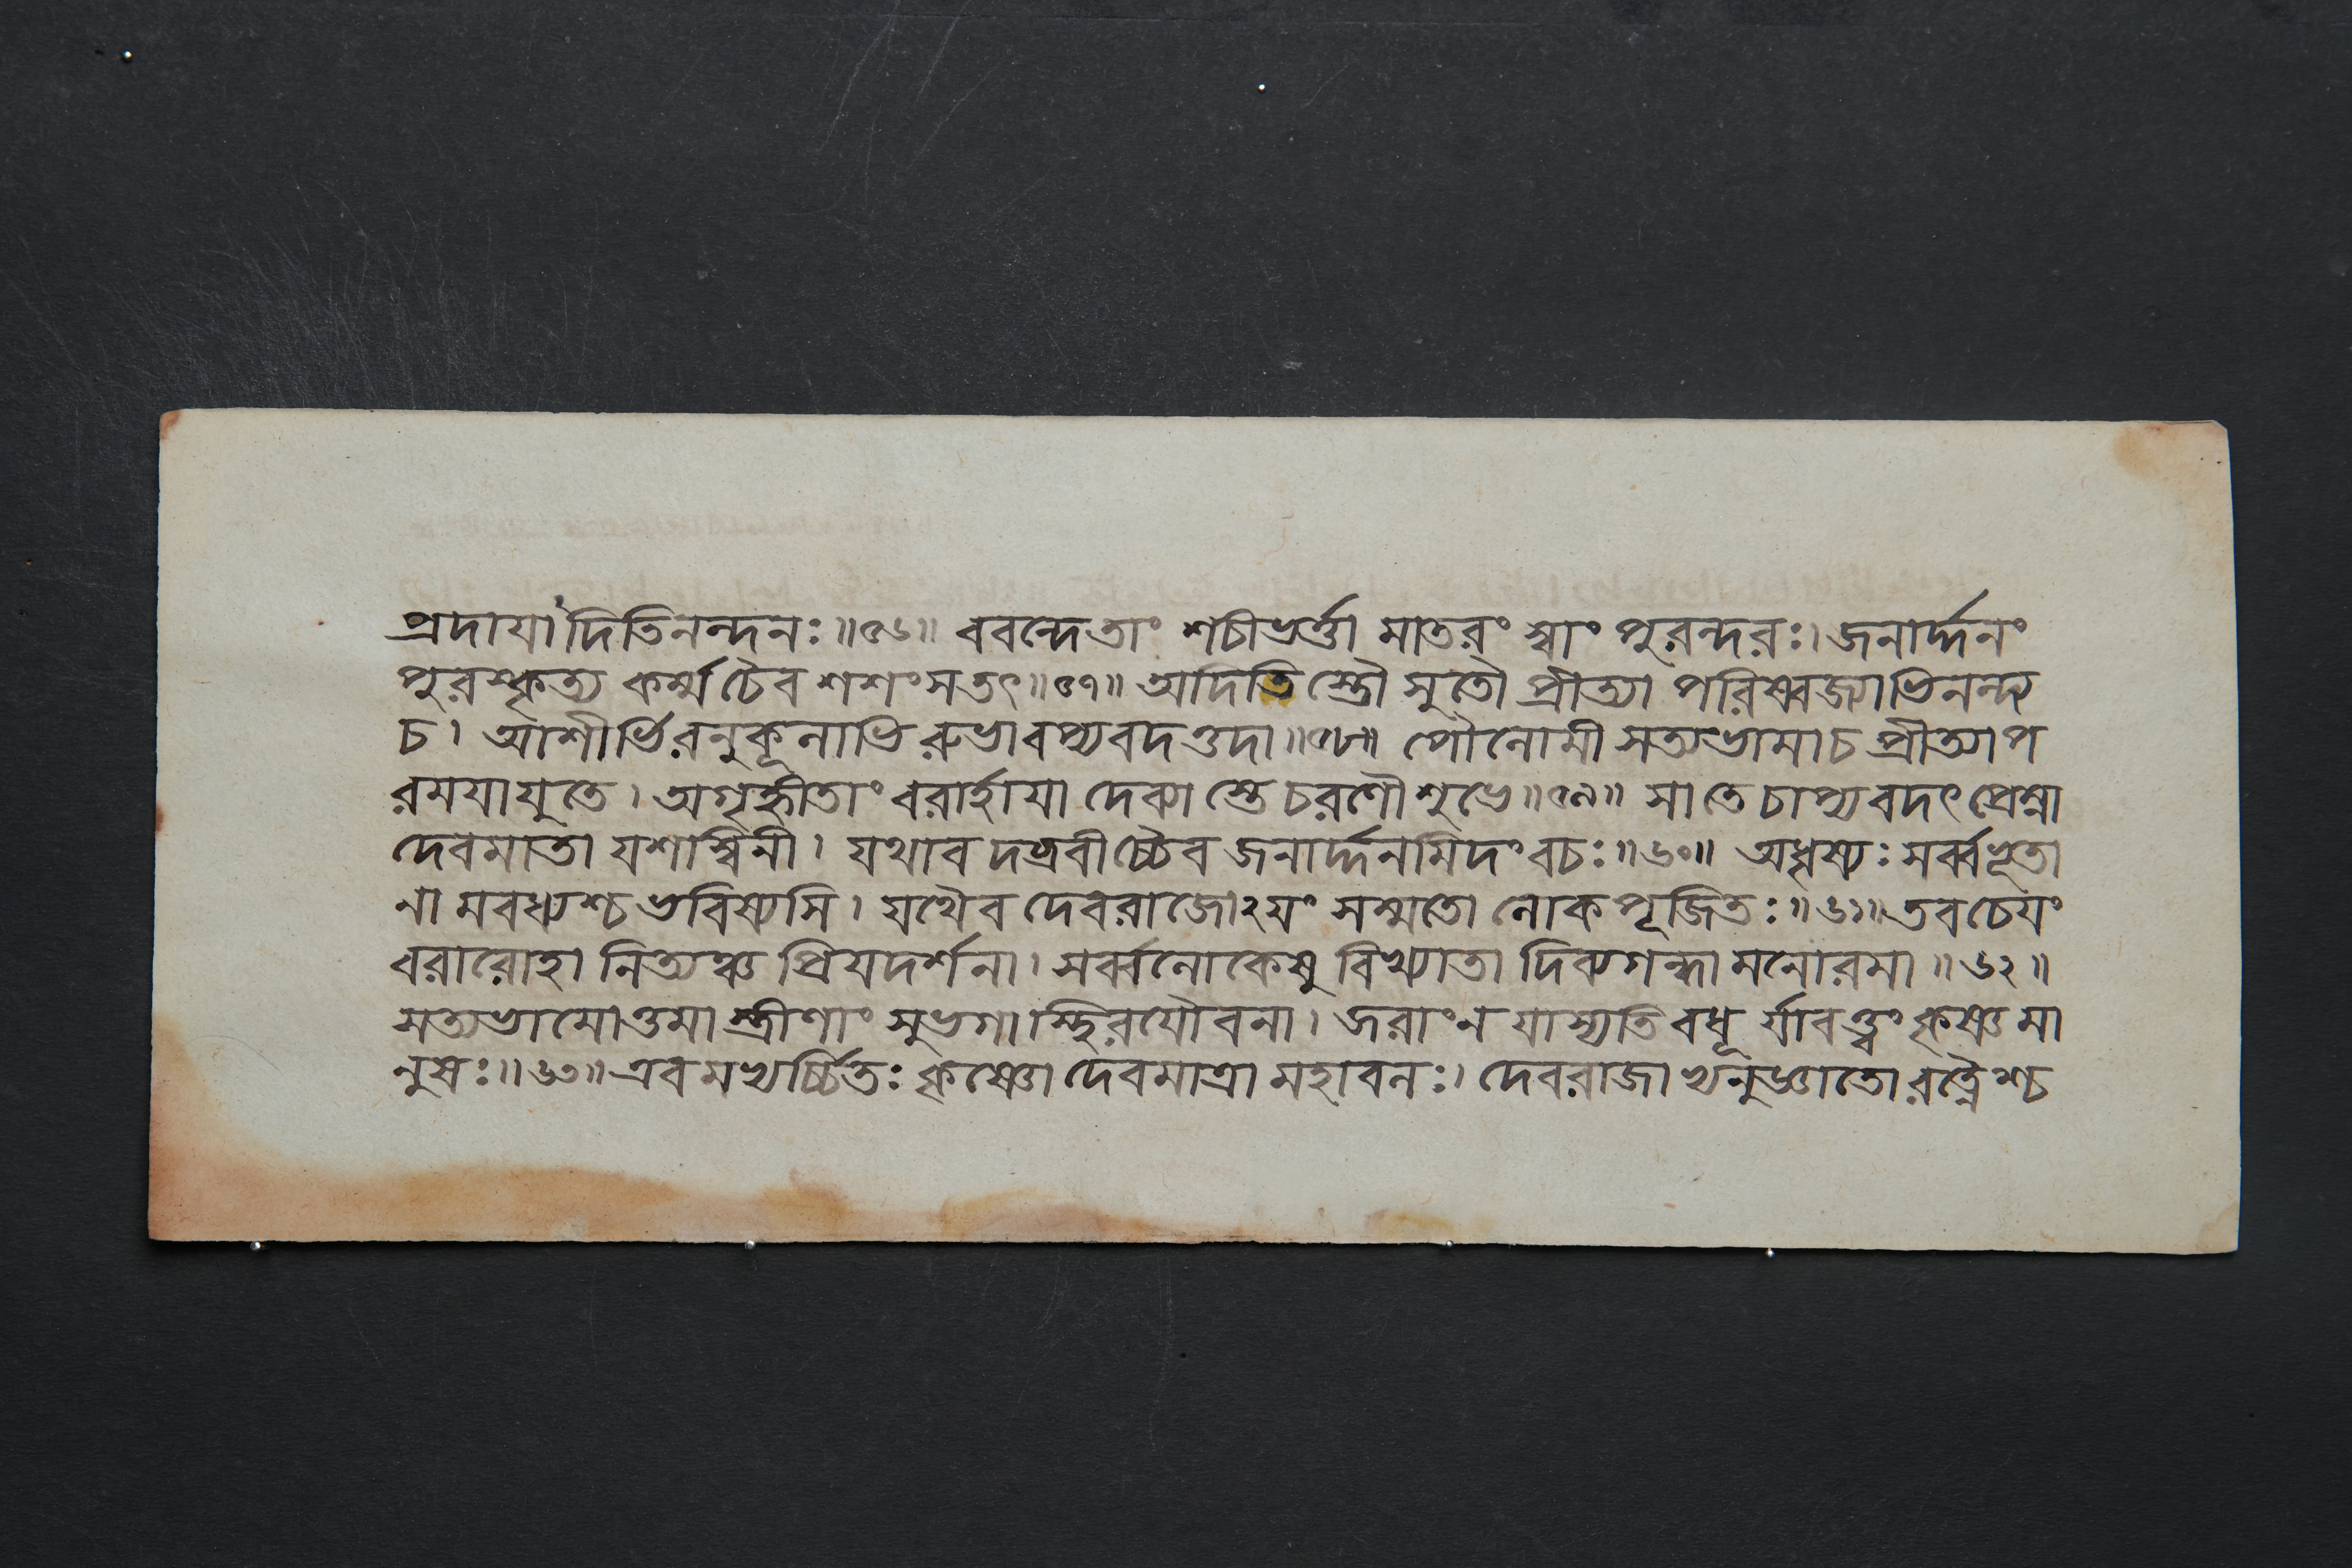 প্রদাযাদিতিনন্দনঃ॥৫৬॥ ববন্দেতাং শচীভর্ত্তা মাতরং স্বাং পুরন্দরঃ। জনার্দ্দনং
পুরস্কৃত্য কর্ম্ম চৈব শশংসতৎ॥৫৭॥ অদিতিস্তৌ সুতৌ প্রীত্যা পরিষ্বজ্যাভিনন্দ্য
চ। আশীর্ভিরনুকূলাভিরুভাবপ্যবদত্তদা॥৫৮॥ পৌলোমী সত্যভামাচ প্রীত্যাপ
রমযাযুতে। অগৃহ্ণীতাং বরার্হাযা দেব্যাস্তে চরণৌ শুভে॥৫৯॥ সা তে চাপ্যবদৎ প্রেম্না
দেবমাতা যশস্বিনী। যথাবদব্রবীচ্চৈব জনার্দ্দনমিদং বচঃ॥৬০॥ অধৃষ্যঃ সর্ব্বভূতা
না মবধ্যশ্চ ভবিষ্যসি। যথৈব দেবরাজোঽযং সম্মতো লোকপূজিতঃ॥৬১॥ তবচেযং
বরারোহা নিত্যঞ্চ প্রিযদর্শনা। সর্ব্বলোকেষু বিখ্যাতা দিব্যগন্ধা মনোরমা॥৬২॥
সত্যভামোত্তমা স্ত্রীণাং সুভগা স্থিরযৌবনা। জরাং ন যাস্যতি বধূর্যাবত্ত্বং কৃষ্ণ মা
নুষঃ॥৬৩॥ এবমভ্যর্চ্চিতঃ কৃষ্ণো দেবমাত্রা মহাবলঃ। দেবরাজাভ্যনুজ্ঞাতো রত্নৈশ্চ